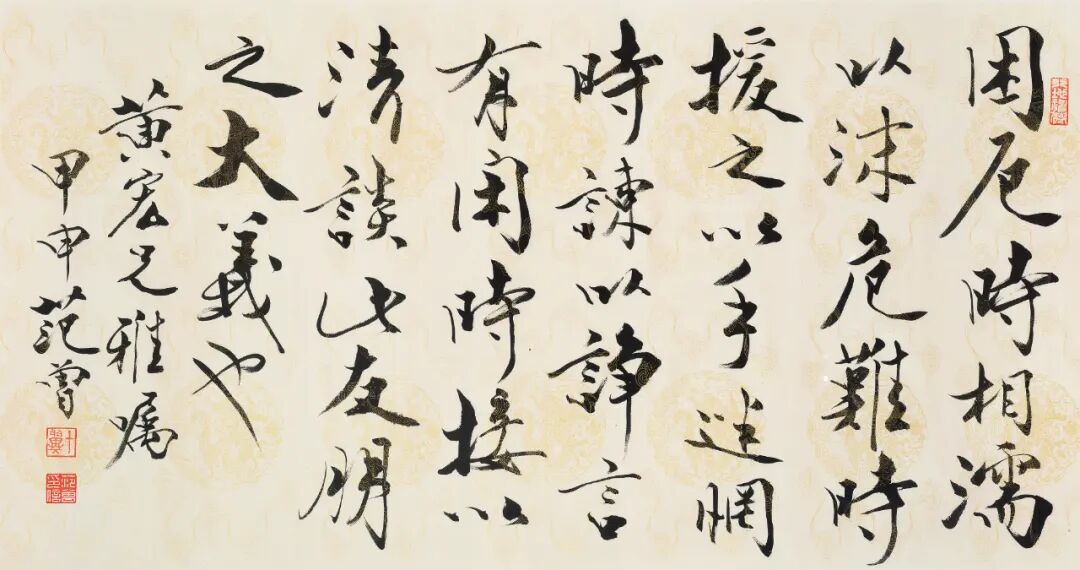 困厄時相濡
以沫危難時
援之以手迷惘
時諫以諍言
有闲時接以
清談此友朋
之大義也
黄宏兄雅嘱
甲申范曾
十翼